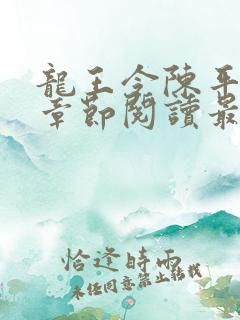 龍王令陳平
章節閱讀最
恰逢時雨
未经同意禁止转载